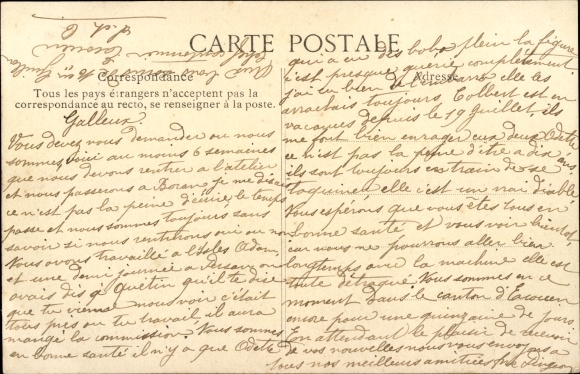 CARTE POSTALE
Correspondance
Adresse
Tous les pays étrangers n'acceptent pas la
correspondance au recto, se renseigner à la poste.
Galleux
Vous devez vous demander ou nous
sommes voici au moins 6 semaines
que nous devons rentrer a l'atelier
et nous passerons a Borans je me disais
ce n'est pas la peine d'écrire le temps
passe et nous sommes toujours sans
savoir si nous rentrerons oui ou non
Nous avons travaillé a l'Isles Adam,
et une demi journée a Persan on
avais dis a Quetin qu'il te dise
que tu vienne nous voir c'était
tous pres ou tu travail il aura
mangé la commission. Nous sommes
en bonne santé il n'y a que Odette
qui a eu des bobo plein la figure
c'est presque guérie complètement
j'ai eu bien a faire elle les
arrachais toujours Colbert est en
vacances depuis le 19 Juillet, ils
me font bien enrager eux deux Odette
ce n'est pas la peine d'être a dix ans,
ils sont toujours en train de se
taquiner elle c'est un vrai diable
Nous espérons que vous êtes tous en
bonne santé et vous voir bientôt,
car nous ne pourrons aller bien
longtemps avec la machine elle est
toute détraqué. Nous sommes en ce
moment dans le canton d'Ecouen
encore pour une quinzaine de jours
En attendant le plaisir de recevoir
de vos nouvelles nous vous envoyons a
tous nos meilleurs amitiées